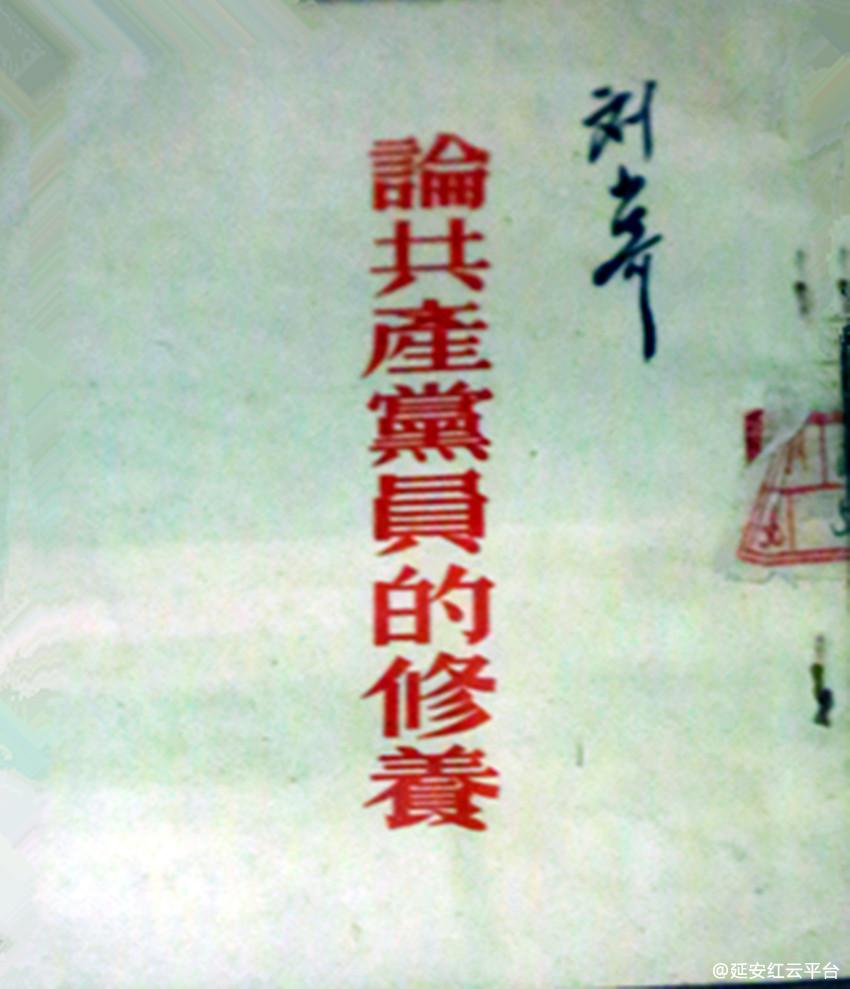 刘少奇
論共產黨員的修養
@延安红云平台